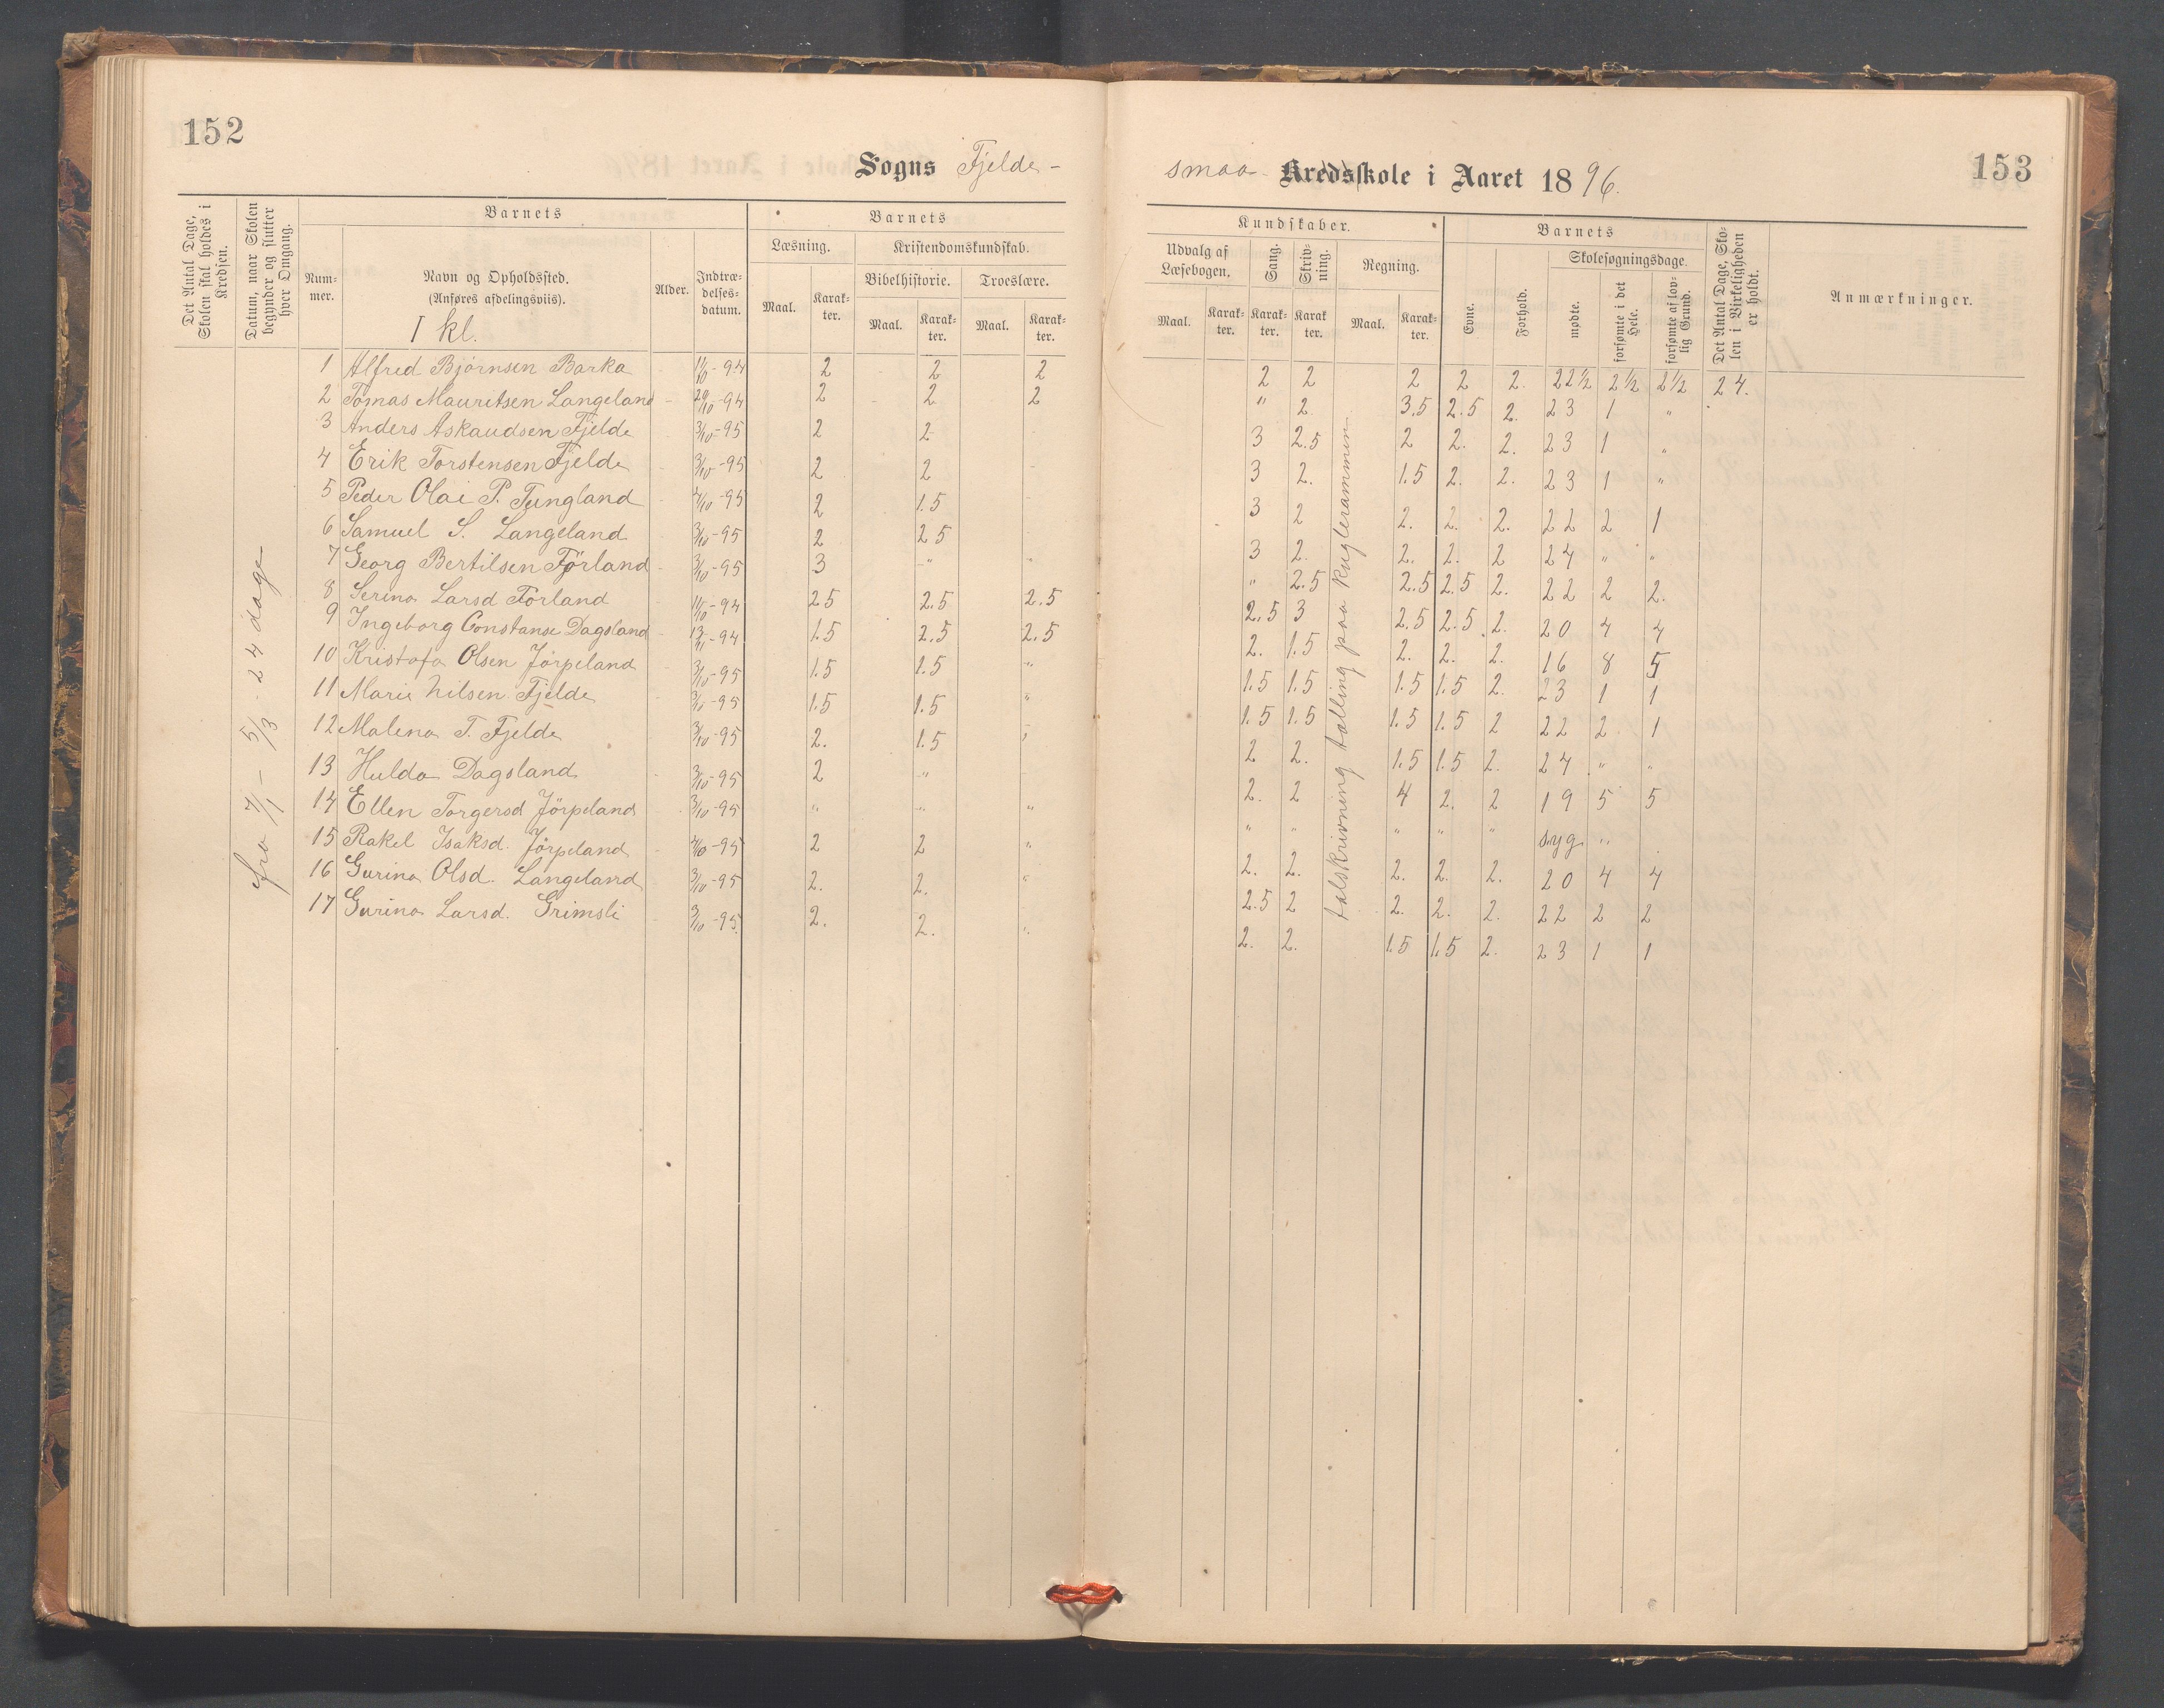 152
Sogns Fjelde-
Det Antal Dage, Skolen skal holdes i Kredsen.
Datum, naar Skolen begynder og slutter hver Omgang.
Barnets
Barnets
Nummer.
Navn og Opholdssted.
(Anføres afdelingsviis).
I kl.
Alder.
Indtrædelsesdatum.
Læsning.
Kristendomskundskab.
Bibelhistorie.
Troeslære.
Maal.
Karakter.
Maal.
Karakter.
Maal.
Karakter.
fra 7/1 - 5/3 - 24 dage
1 Alfred Bjørnsen Barka 11/10-94 2 2 2
2 Tønnas Mauritsen Langeland 29/10-94 2 2 2
3 Anders Askaudsen Fjelde 3/10-95 2 2
4 Erik Torstensen Fjelde 3/10-95 2 2
5 Peder Olai P. Tungland 4/10-95 2 1.5
6 Samuel S. Langeland 3/10-95 2 2 5
7 Georg Bertilsen Förland 3/10-95 3 "
8 Serina Larsd Förland 11/10-94 2 5 2.5 2.5
9 Ingeborg Constanse Dagsland 13/11-94 1.5 2.5 2.5
10 Kristofa Olsen Jörpeland 3/10-95 1.5 1.5 "
11 Marie Nilsen Fjelde 3/10-95 1.5 1.5 "
12 Malena T. Fjelde 3/10-95 2. 1.5 "
13 Hulda Dagsland 3/10-95 2 "
14 Ellen Torgersd Jörpeland 3/10-95 " " "
15 Rakel Isaksd. Jörpeland 4/10-95 2 2 "
16 Gurina Olsd. Langeland 3/10-95 2. 2. "
17 Gurina Larsd. Grimsli 3/10-95. 2. 2. "
153
smaa- Kredsskole i Aaret 1896.
Kundskaber.
Barnets
Udvalg af Læsebogen.
Sang.
Skrivning.
Regning.
Evne.
Forhold.
Skolesøgningsdage.
mødte.
forsømte i det Hele.
forsømte af lovlig Grund.
Det Antal Dage, Skolen i Virkeligheden er holdt.
Anmærkninger.
Maal.
Karakter.
Karakter.
Karakter.
Maal.
Karakter.
talskrivning tælling paa kuglerammen
2 2 2 2 2. 22½ 2½ 2½ 24.
" 2 3.5 2.5 2. 23 1 "
3 2.5 2 2. 2. 23 1 "
3 2. 1.5 2. 2. 23 1 "
3 2 2. 2. 2. 22 2 1
3 2. 2. 2. 2 24 " "
" 2.5 2.5 2.5 2. 22 2 2.
2.5 3 2.5 2.5 2. 20 4 4
2. 1.5 2. 2. 2. 16 8 5
1.5 1.5 1.5 1.5 2. 23 1 1
1.5 1.5 1.5 1.5 2 22 2 1
2 2. 1.5 1.5 2. 24 " "
2. 2 4 2. 2 19 5 5
" " " " " syg "
2. 2. 2. 2. 2. 20 4 4
2.5 2 2. 2. 2. 22 2 2
2. 2. 1.5 1.5 2. 23 1 1